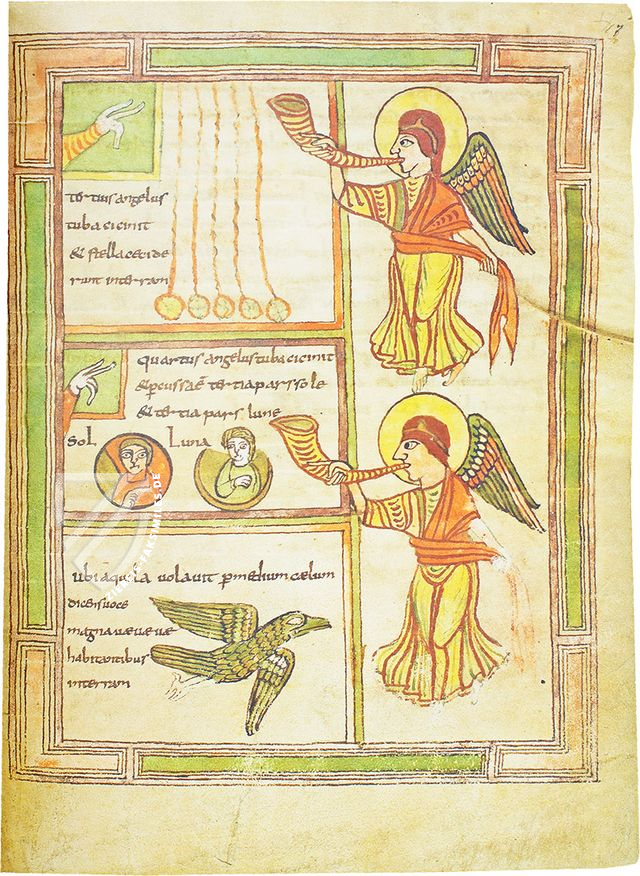 tertius angelus
tuba cicinit
& stellaceci de
runt interram
quartus angelus tuba cicinit
& percussa ē tertia pars sole
& tertia pars lune
Sol Luna
ubi aquila volavit p medium cælum
dicens voce
magna væ væ væ
habitantibus
interram